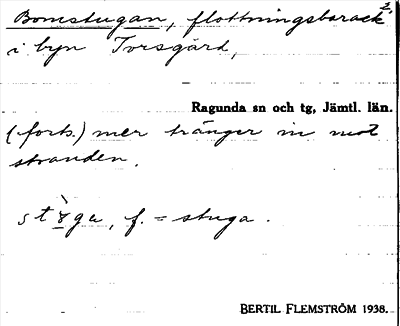 Bomstugan, flottningsbarack 2.
i byn Torsgård,
Ragunda sn och tg, Jämtl. län.
(forts.) mer tränger in mot
stranden.
f. = stuga.
BERTIL FLEMSTRÖM 1938.